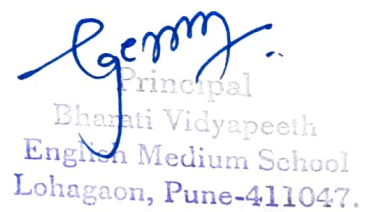 Principal
Bharati Vidyapeeth
English Medium School
Lohagaon, Pune-411047.